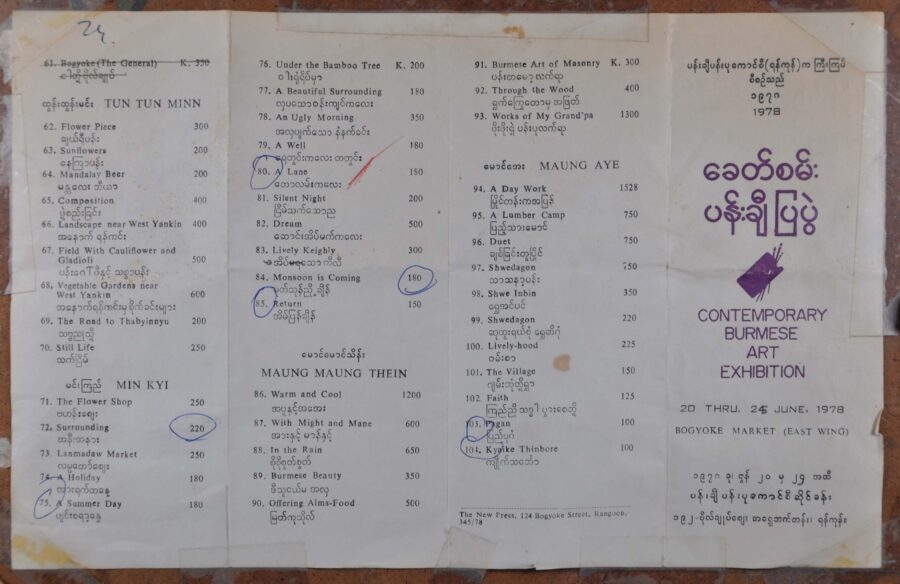 61. Bogyoke (The General) K. 350
ထွန်းထွန်းမင်း TUN TUN MINN
62. Flower Piece 300
63. Sunflowers 200
နေကြာပန်း
64. Mandalay Beer 200
မန္တလေး ဘီယာ
65. Composition 400
ပွဲစည်းခြင်း
66. Landscape near West Yankin 400
အနောက် ရန်ကင်း
67. Field With Cauliflower and
Gladioli 500
ပန်းဂေါ်ဖီနှင့် သစ္စာပန်း
68. Vegetable Gardens near
West Yankin 600
အနောက်ရန်ကင်းမှ စိုက်ခင်းများ
69. The Road to Thabyinnyu 200
သဗ္ဗညုသို့
70. Still Life 250
သက်ငြိမ်
မင်းကြည် MIN KYI
71. The Flower Shop 250
ဗဟန်းစျေး
72. Surrounding 220
အနီးအနား
73. Lanmadaw Market 250
လမ်းမတော်စျေး
74. A Holiday 180
အားရက်တနေ့
75. A Summer Day 180
76. Under the Bamboo Tree K. 200
ဝါးရုံရိပ်မှာ
77. A Beautiful Surrounding 180
လှပသောဝန်းကျင်ကလေး
78. An Ugly Morning 350
အလှပျက်သော နံနက်ခင်း
79. A Well 180
ရေတွင်းကလေး တတွင်း
80. A Lane 180
တောလမ်းကလေး
81. Silent Night 200
ငြိမ်သက်သောည
82. Dream 500
ဆောင်းအိပ်မက်ကလေး
83. Lively Keighly 300
84. Monsoon is Coming 180
မုတ်သုန်ညို့ချိန်
85. Return 150
အိမ်ပြန်ချိန်
မောင်မောင်သိန်း
MAUNG MAUNG THEIN
86. Warm and Cool 1200
အပူနှင့်အအေး
87. With Might and Mane 600
အားနှင့် မာန်နှင့်
88. In the Rain 650
စိုစိုစွတ်စွတ်
89. Burmese Beauty 350
ဒီသူငယ်မ အလှ
90. Offering Alms-Food 500
မြတ်ကုသိုလ်
91. Burmese Art of Masonry K. 300
ပန်းတမော့ လက်ရာ
92. Through the Wood 400
ရွက်ကြွေတောမှ အဖြတ်
93. Works of My Grand'pa 1300
ဘိုးဘိုးရဲ့ ပန်းပုလက်ရာ
မောင်အေး MAUNG AYE
94. A Day Work 1528
95. A Lumber Camp 750
ပြည့်သားမောင်
96. Duet 750
97. Shwedagon 750
သာသနာ့ပန်း
98. Shwe Inbin 350
ရွှေအင်ပင်
99. Shwedagon 220
ဆုထူးရယ်စုံ ရွှေတိဂုံ
100. Lively-hood 225
ဝမ်းစာ
101. The Village 150
102. Faith 125
103. Pagan 100
ပြည်ပုဂံ
104. Kyaike Thinbore 100
The New Press, 124 Bogyoke Street, Rangoon.
345/78
ပန်းချီပန်းပုကောင်စီ(ရန်ကုန်)က ကြီးကြပ်
စီစဉ်သည်
၁၉၇၈
1978
ခေတ်စမ်း
ပန်းချီ ပြပွဲ
CONTEMPORARY
BURMESE
ART
EXHIBITION
20 THRU. 24 JUNE, 1978
BOGYOKE MARKET (EAST WING)
၁၉၇၈ ခု ဇွန် ၂၀ မှ ၂၄ အထိ
ပန်းချီပန်းပုကောင်စီဆိုင်ခန်း
၁၉၂-ဗိုလ်ချုပ်စျေး အရှေ့ဘက်တန်း၊ ရန်ကုန်။